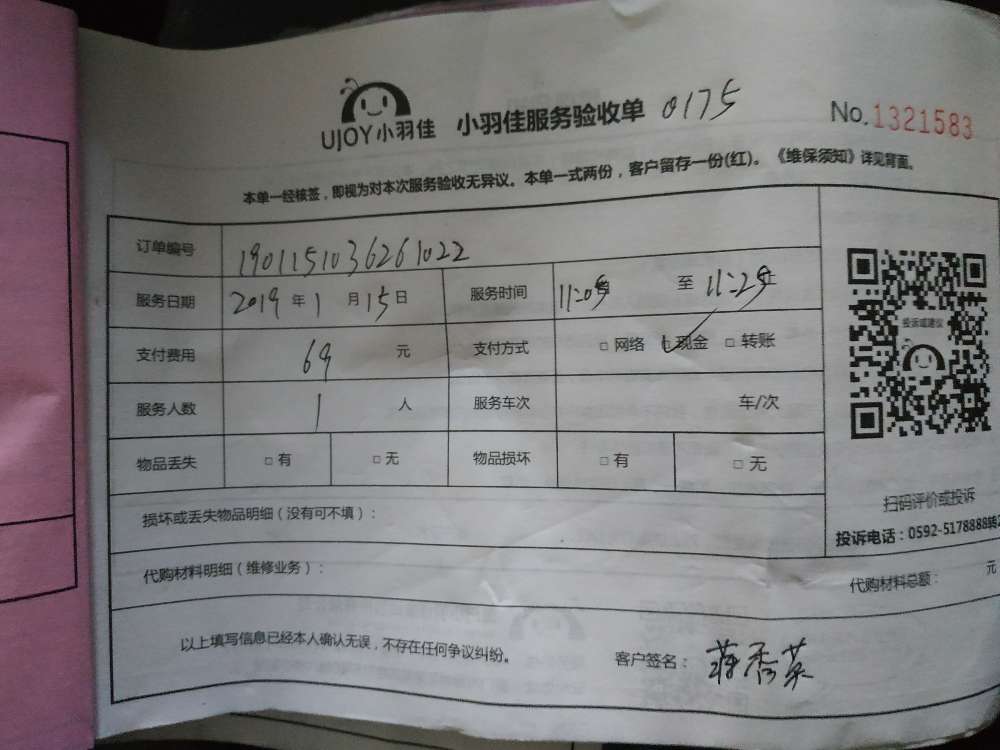 UJOY小羽佳 小羽佳服务验收单 0175 No.1321583
本单一经核签，即视为对本次服务验收无异议。本单一式两份，客户留存一份(红)。《维保须知》详见背面。
订单编号 1901151036261022
服务日期 2019年1月15日 服务时间 11:05 至 11:25
支付费用 69 元 支付方式 □网络 □现金 □转账
服务人数 1 人 服务车次 车/次
物品丢失 □有 □无 物品损坏 □有 □无
投诉或建议
扫码评价或投诉
损坏或丢失物品明细（没有可不填）：
投诉电话：0592-5178888转2
代购材料明细（维修业务）： 代购材料总额： 元
以上填写信息已经本人确认无误，不存在任何争议纠纷。 客户签名：蒋秀英